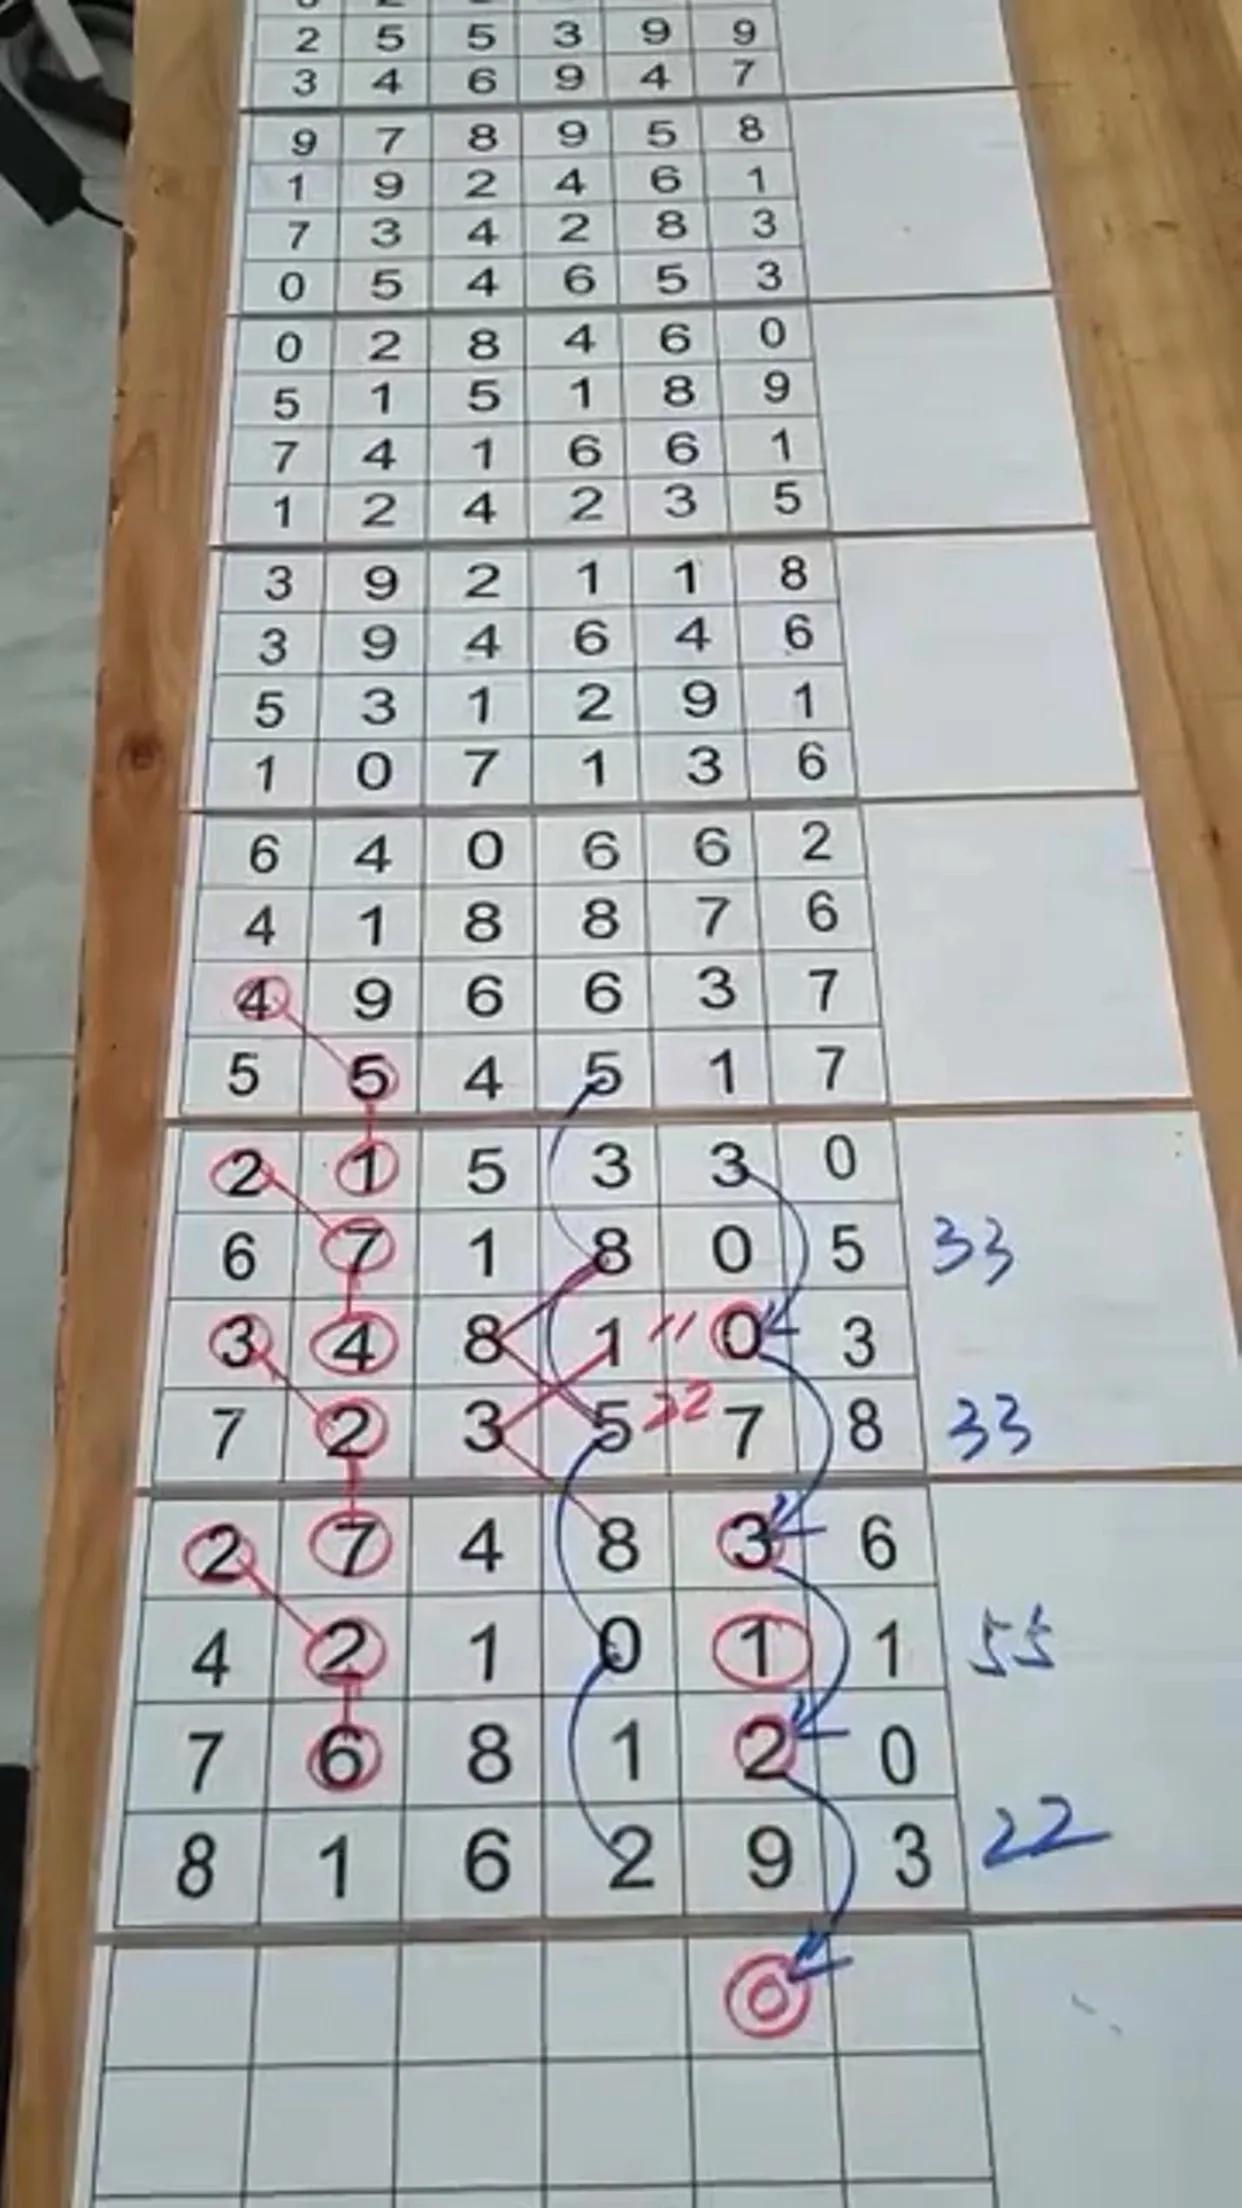 2 5 5 3 9 9
3 4 6 9 4 7
9 7 8 9 5 8
1 9 2 4 6 1
7 3 4 2 8 3
0 5 4 6 5 3
0 2 8 4 6 0
5 1 5 1 8 9
7 4 1 6 6 1
1 2 4 2 3 5
3 9 2 1 1 8
3 9 4 6 4 6
5 3 1 2 9 1
1 0 7 1 3 6
6 4 0 6 6 2
4 1 8 8 7 6
4 9 6 6 3 7
5 5 4 5 1 7
2 1 5 3 3 0
6 7 1 8 0 5 33
3 4 8 1 11 0 3
7 2 3 5 32 7 8 33
2 7 4 8 3 6
4 2 1 0 1 1 55
7 6 8 1 2 0
8 1 6 2 9 3 22
0